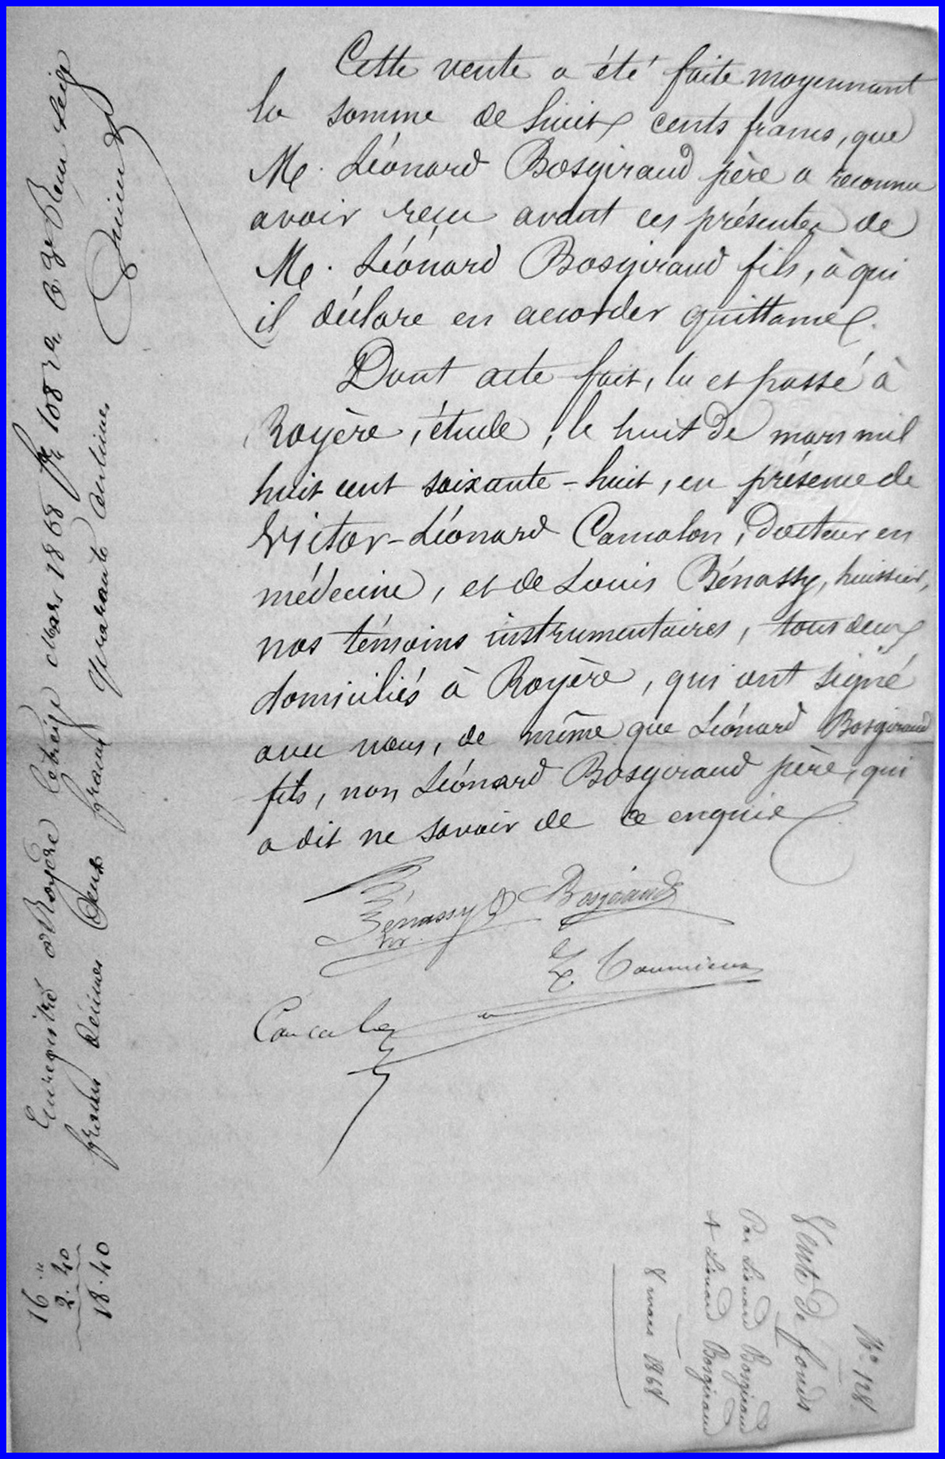 Cette vente a été faite moyennant
la somme de huit cents francs, que
M. Léonard Bosgiraud père a reconnu
avoir reçu avant ces présentes de
M. Léonard Bosgiraud fils, à qui
il déclare en accorder quittance.
Dont acte fait, lu et passé à
Royère, étude, le huit de mars mil
huit cent soixante-huit, en présence de
Victor-Léonard Camalon, docteur en
médecine, et de Louis Bénassy, huissier,
nos témoins instrumentaires, tous deux
domiciliés à Royère, qui ont signé
avec nous, de même que Léonard Bosgiraud
fils, non Léonard Bosgiraud père, qui
a dit ne savoir de ce enquis
Bénassy Bosgiraud
Enregistré à Royère le treize Mars 1868 fo 108 Reçu seize
francs décimes deux francs quarante centimes
16 "
2.40
18.40
No 128
Vente de fonds
Par Léonard Bosgiraud
A Léonard Bosgiraud
8 mars 1868